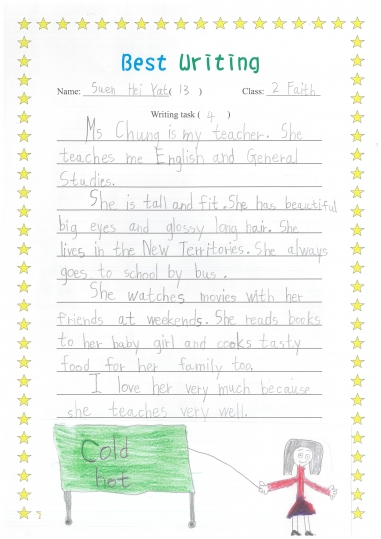 Best Writing
Name: Suen Hei Yat( 13 ) Class: 2 Faith
Writing task ( 4 )
Ms Chung is my teacher. She
teaches me English and General
Studies.
She is tall and fit. She has beautiful
big eyes and glossy long hair. She
lives in the New Territories. She always
goes to school by bus.
She watches movies with her
friends at weekends. She reads books
to her baby girl and cooks tasty
food for her family too.
I love her very much because
she teaches very well.
Cold
hot